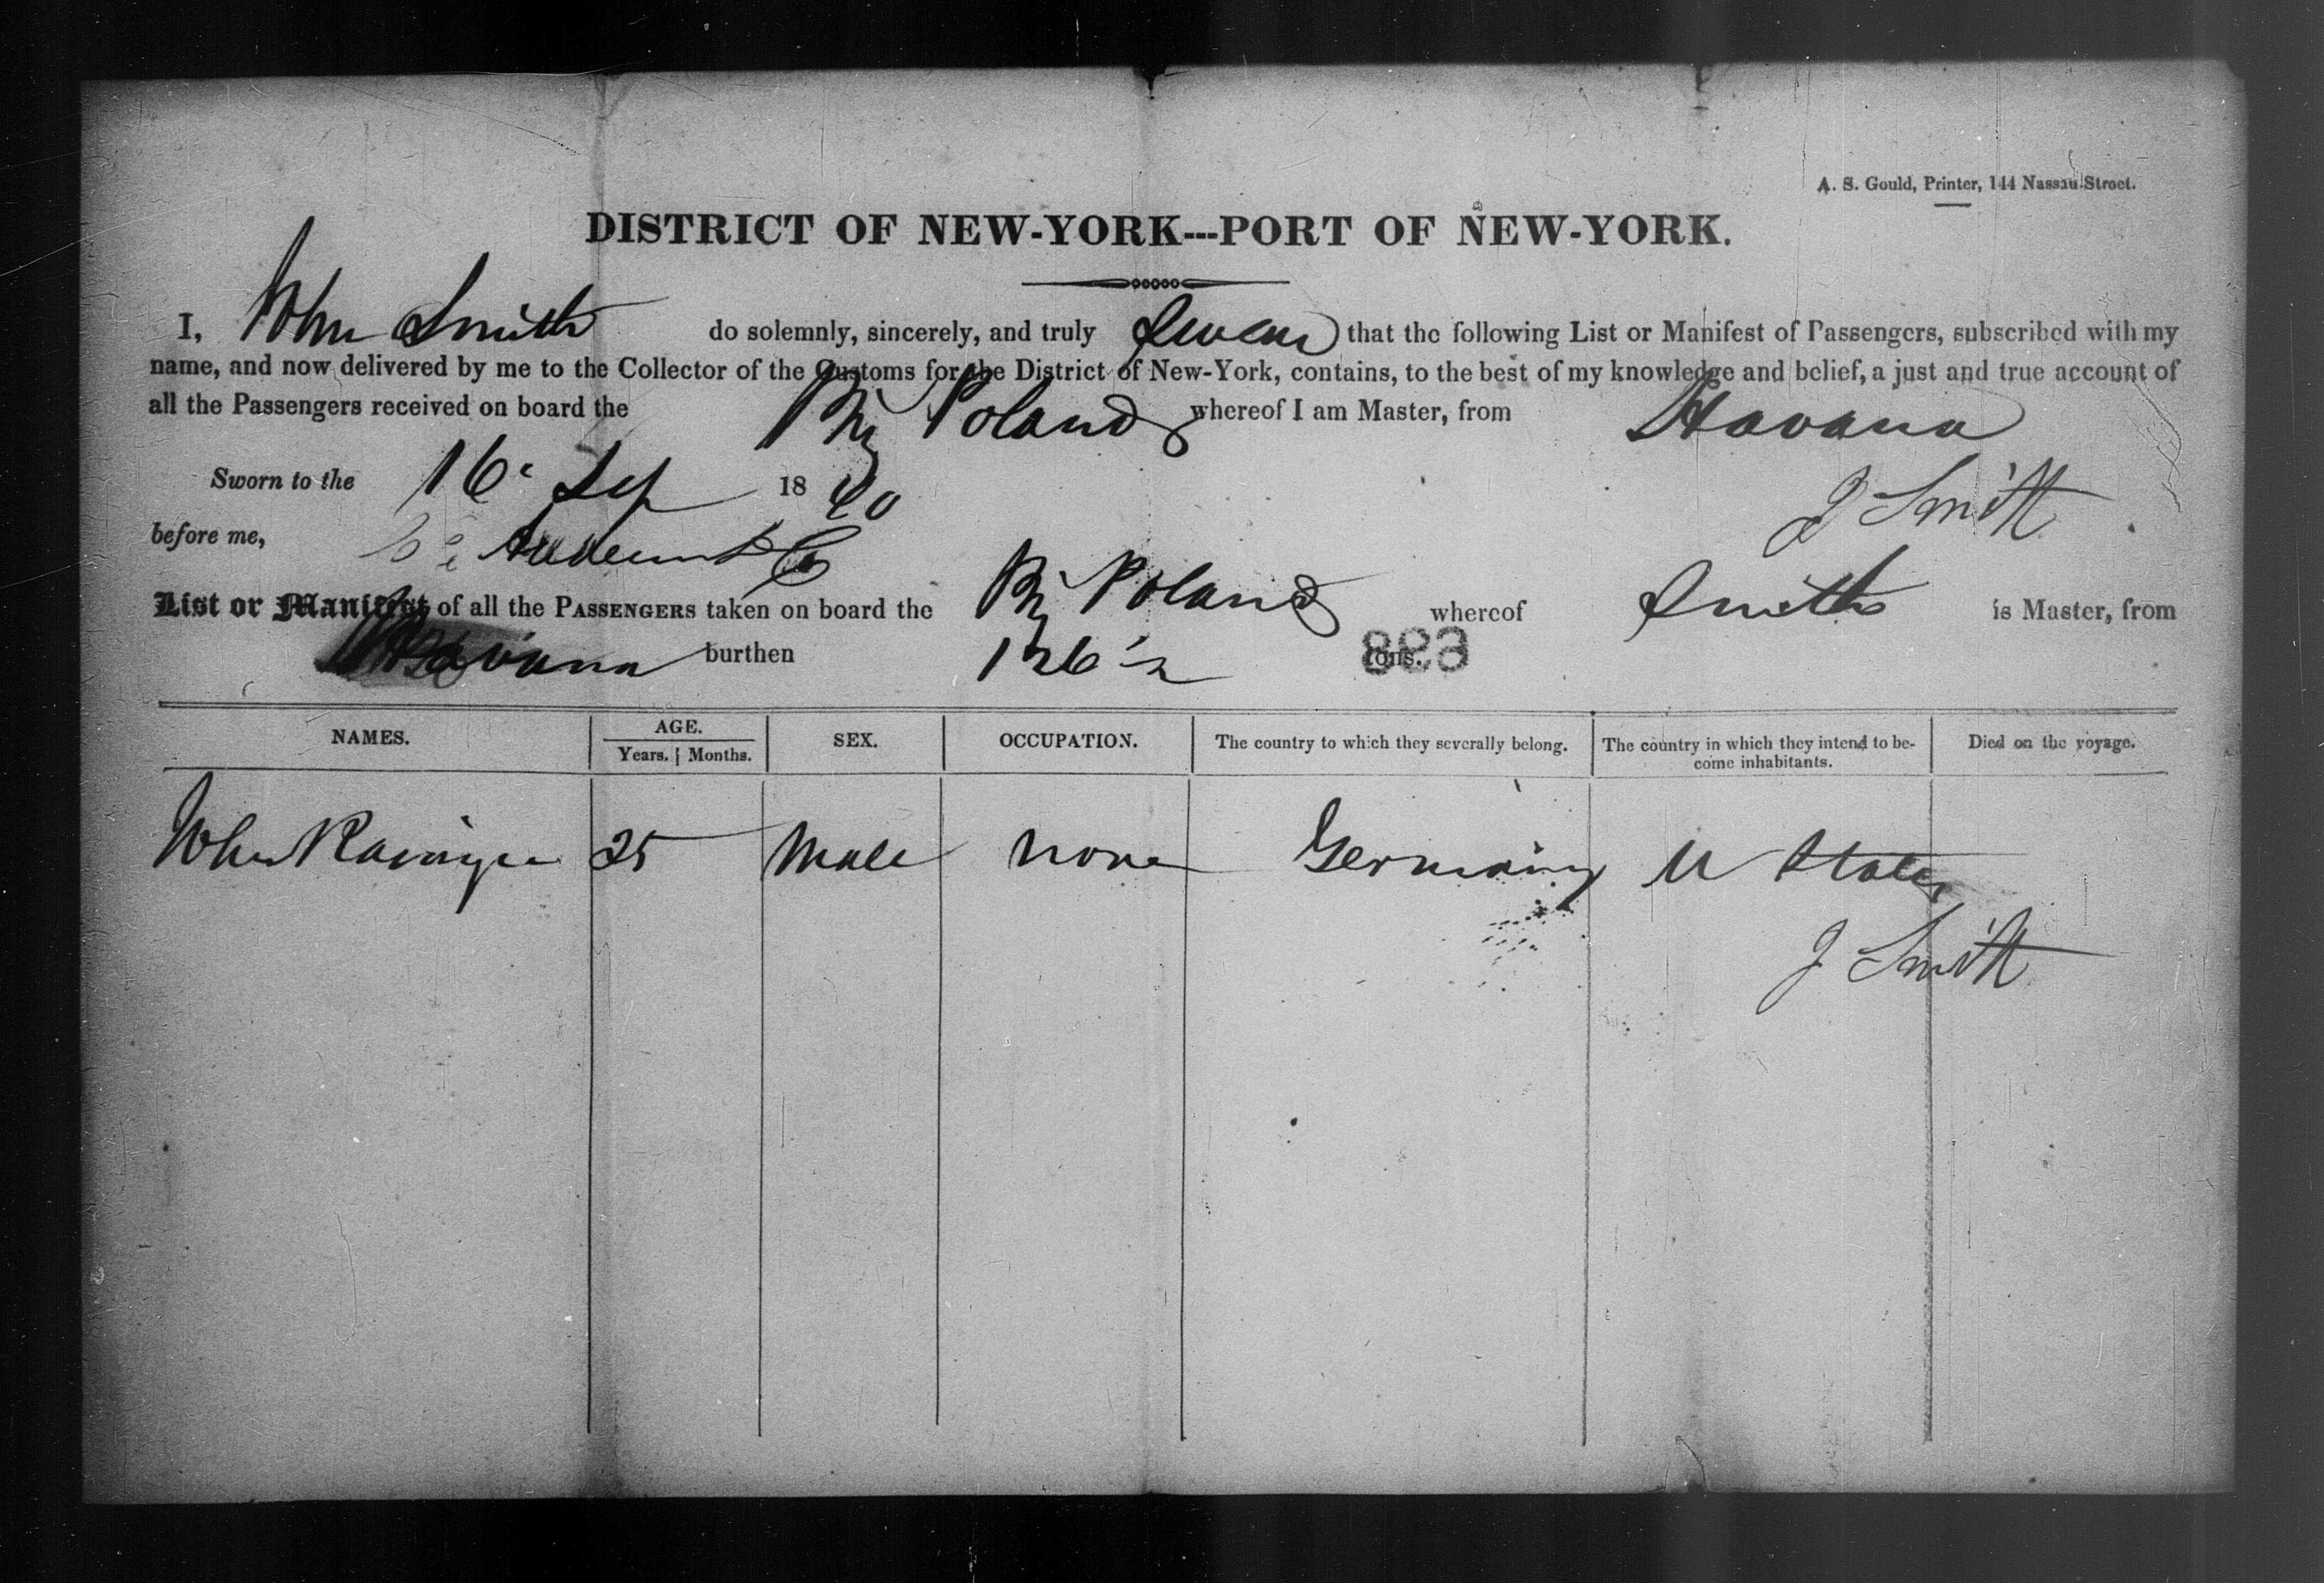 A. S. Gould, Printer, 144 Nassau Street.
DISTRICT OF NEW-YORK---PORT OF NEW-YORK.
I, John Smith do solemnly, sincerely, and truly swear that the following List or Manifest of Passengers, subscribed with my
name, and now delivered by me to the Collector of the Customs for the District of New-York, contains, to the best of my knowledge and belief, a just and true account of
all the Passengers received on board the Brig Poland whereof I am Master, from Havana
Sworn to the 16 Sep 1840 J Smith
before me,
List or Manifest of all the PASSENGERS taken on board the Brig Poland whereof Smith is Master, from
Havana burthen tons. 883
NAMES. AGE. SEX. OCCUPATION. The country to which they severally belong. The country in which they intend to be- Died on the voyage.
Years. Months. come inhabitants.
John 25 Male none Germany U States
J Smith